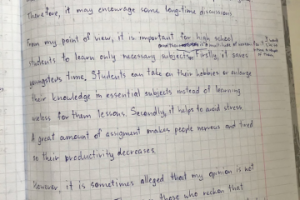 Therefore, it may encourage some long-time discussions
From my point of view, it is important for high school
students to learn only necessary subjects. Firstly, it saves
youngsters time. Students can take on their hobbies or enlarge
their knowledge in essential subjects instead of learning
useless for them lessons. Secondly, it helps to avoid stress
A great amount of assignment makes people nervous and tired
so their productivity decreases.
However, it is sometimes alleged that my opinion is not
those who reckon that